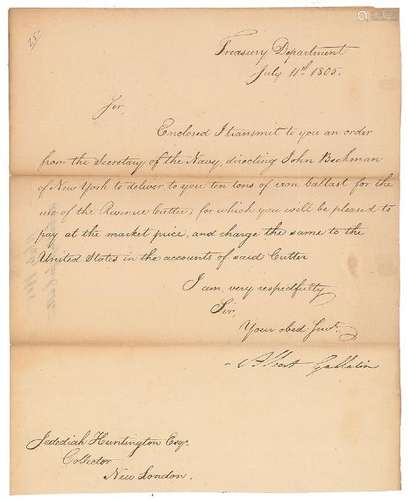 25
Treasury Department
July 11th 1805.
Sir
Enclosed I transmit to you an order
from the Secretary of the Navy, directing John Beekman
of New York to deliver to you ten tons of iron ballast for the
use of the Revenue Cutter; for which you will be pleased to
pay at the market price, and charge the same to the
United States in the accounts of said Cutter
I am very respectfully
Sir,
Your obed Servt.
Albert Gallatin
Jedediah Huntington Esqr.
Collector
New London.